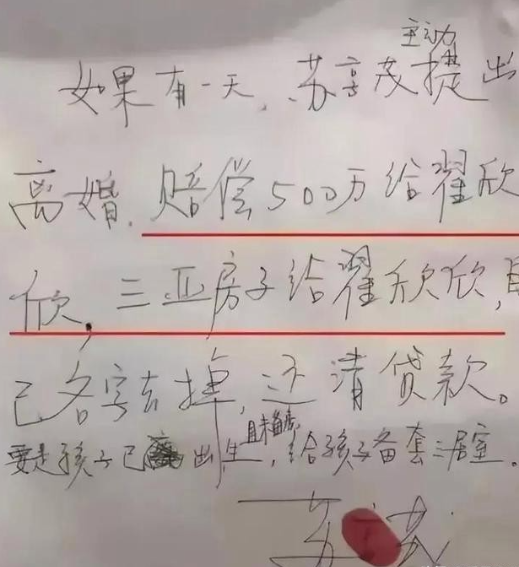 如果有一天,苏享茂主动提出
离婚,赔偿500万给翟欣
欣,三亚房子给翟欣欣,自
己名字去掉,还清贷款。
要是孩子已出生,且未备房,给孩子备套三居室。
苏享茂